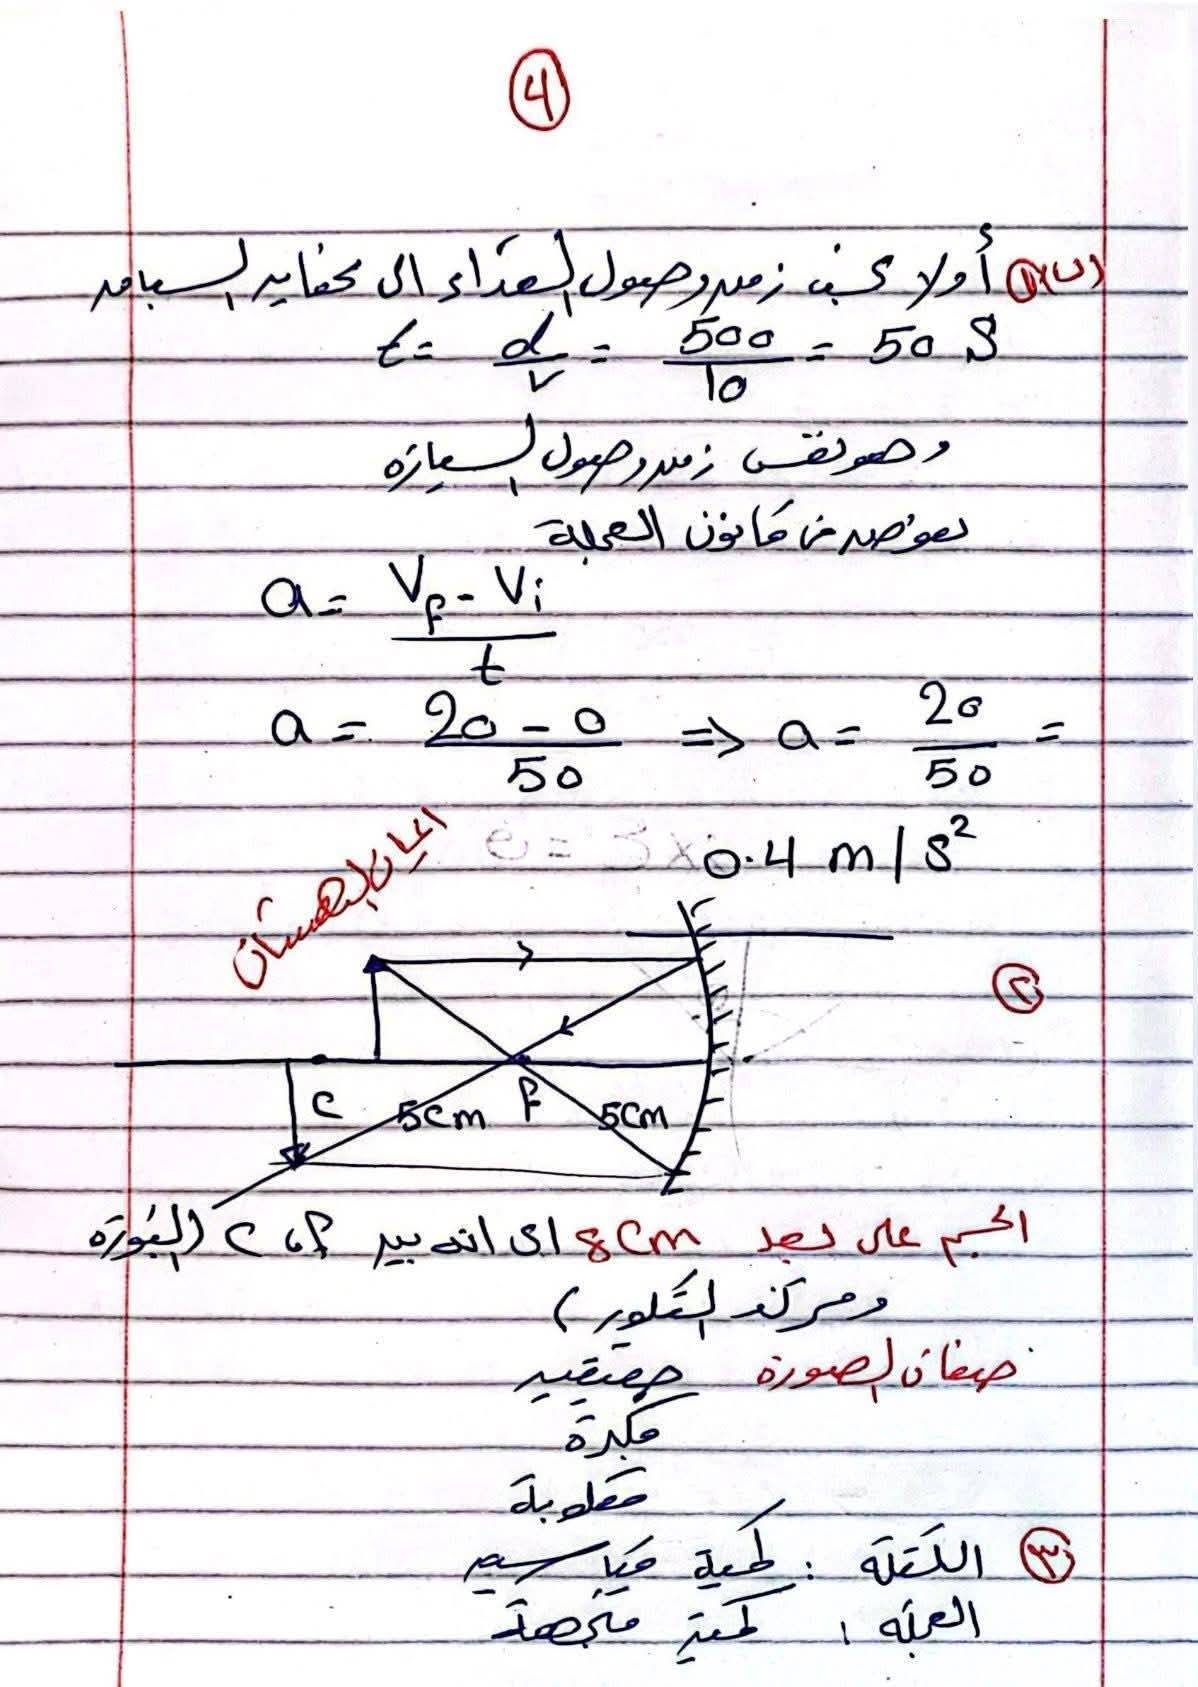 4
(ب) ١) أولا نحسب زمن وصول العداء الى نهاية السباق
t = d/v = 500/10 = 50 S
وهو نفس زمن وصول السيارة
نعوض من قانون العجلة
a = Vf - Vi / t
a = 20 - 0 / 50 => a = 20 / 50 =
0.4 m/s²
٢
C 5cm F 5cm
الجسم على بعد 8cm اى انه بين F ، C (البؤرة
ومركز التكور)
صفات الصورة حقيقية
مكبرة
مقلوبة
٣ الكتلة : كمية قياسية
العجلة : كمية متجهة